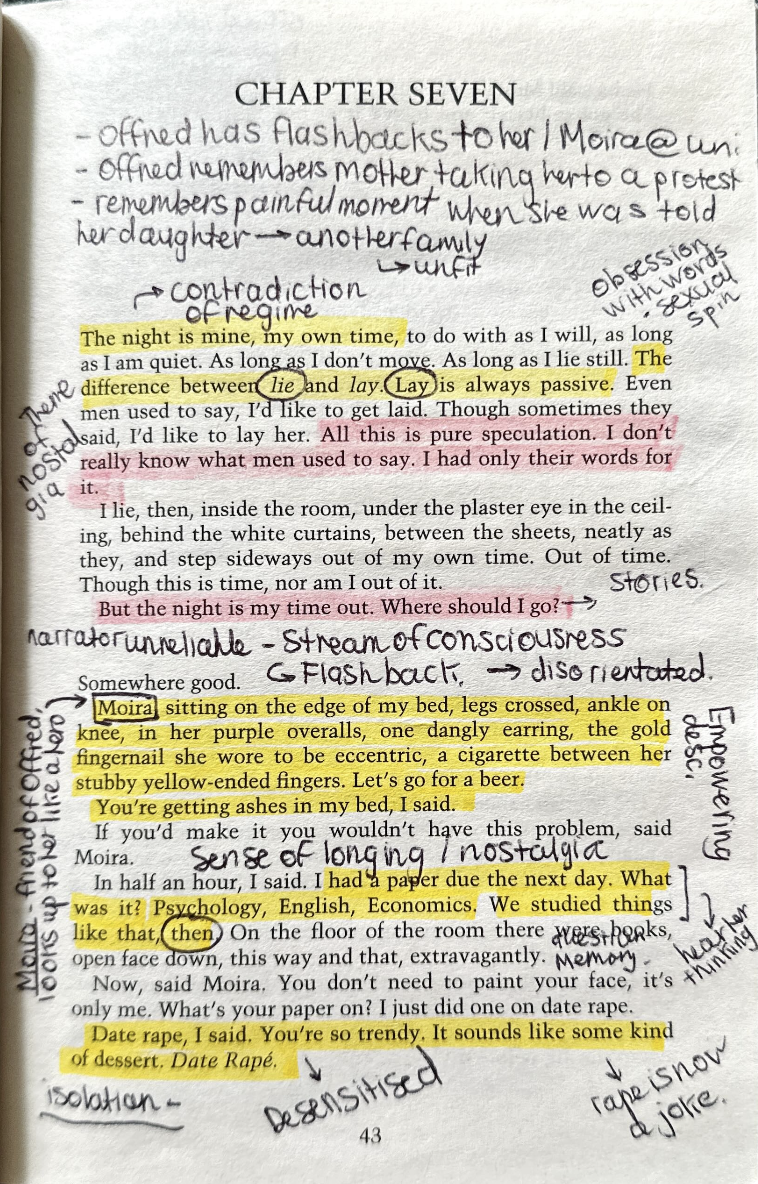 CHAPTER SEVEN
- Offred has flashbacks to her / Moira @ uni
- Offred remembers mother taking her to a protest
- remembers painful moment when she was told
her daughter → another family
↳ unfit
→ contradiction
of regime
obsession
with words
- sexual
spin
The night is mine, my own time, to do with as I will, as long
as I am quiet. As long as I don't move. As long as I lie still. The
difference between lie and lay. Lay is always passive. Even
men used to say, I'd like to get laid. Though sometimes they
said, I'd like to lay her. All this is pure speculation. I don't
really know what men used to say. I had only their words for
it.
theme
of
nostal
gia
I lie, then, inside the room, under the plaster eye in the ceil-
ing, behind the white curtains, between the sheets, neatly as
they, and step sideways out of my own time. Out of time.
Though this is time, nor am I out of it.
But the night is my time out. Where should I go? → stories.
narrator unreliable - Stream of consciousness
↳ Flashback. → disorientated.
Somewhere good.
Moira sitting on the edge of my bed, legs crossed, ankle on
knee, in her purple overalls, one dangly earring, the gold
fingernail she wore to be eccentric, a cigarette between her
stubby yellow-ended fingers. Let's go for a beer.
Empowering
desc.
You're getting ashes in my bed, I said.
If you'd make it you wouldn't have this problem, said
Moira.
Sense of longing / nostalgia
Moira - friend of Offred,
looks up to her like a hero
In half an hour, I said. I had a paper due the next day. What
was it? Psychology, English, Economics. We studied things
like that, then. On the floor of the room there were books,
open face down, this way and that, extravagantly.
question
memory.
hear her
thinking
Now, said Moira. You don't need to paint your face, it's
only me. What's your paper on? I just did one on date rape.
Date rape, I said. You're so trendy. It sounds like some kind
of dessert. Date Rapé.
isolation -
Desensitised
rape is now
a joke.
43